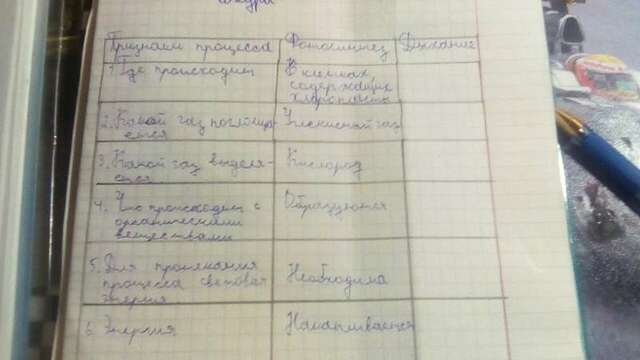 Признаки процесса Фотосинтез Дыхание
1. Где происходит В клетках, содержащих хлоропласты
2. Какой газ поглоща-
ется Углекислый газ
3. Какой газ выделя-
ется Кислород
4. Что происходит с
органическими
веществами Образуются
5. Для протекания
процесса световая
энергия Необходима
6. Энергия Накапливается